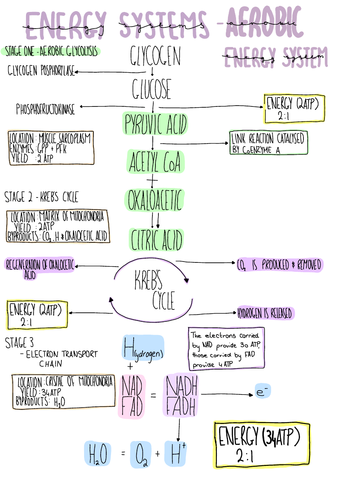 ENERGY SYSTEMS - AEROBIC
ENERGY SYSTEM
STAGE ONE - AEROBIC GLYCOLYSIS
GLYCOGEN
GLYCOGEN PHOSPHORYLASE
GLUCOSE
PHOSPHOFRUCTOKINASE
ENERGY (2ATP)
2:1
PYRUVIC ACID
LOCATION: MUSCLE SARCOPLASM
ENZYMES: GPP + PFK
YIELD: 2ATP
LINK REACTION CATALYSED
BY COENZYME A
ACETYL COA
+
STAGE 2 - KREB'S CYCLE
OXALOACETIC
LOCATION: MATRIX OF MITOCHONDRIA
YIELD: 2ATP
BYPRODUCTS: CO2, H & OXALOETIC ACID
CITRIC ACID
REGENERATION OF OXALOETIC
ACID
CO2 IS PRODUCED & REMOVED
KREB'S
CYCLE
ENERGY (2ATP)
2:1
HYDROGEN IS RELEASED
STAGE 3
- ELECTRON TRANSPORT
CHAIN
H(hydrogen)
+
The electrons carried
by NAD provide 30 ATP
those carried by FAD
provide 4 ATP
LOCATION: CRISTAE OF MITOCHONDRIA
YIELD: 34ATP
BYPRODUCTS: H2O
NAD = NADH
FAD FADH
e-
H2O = O2 + H+
ENERGY (34ATP)
2:1